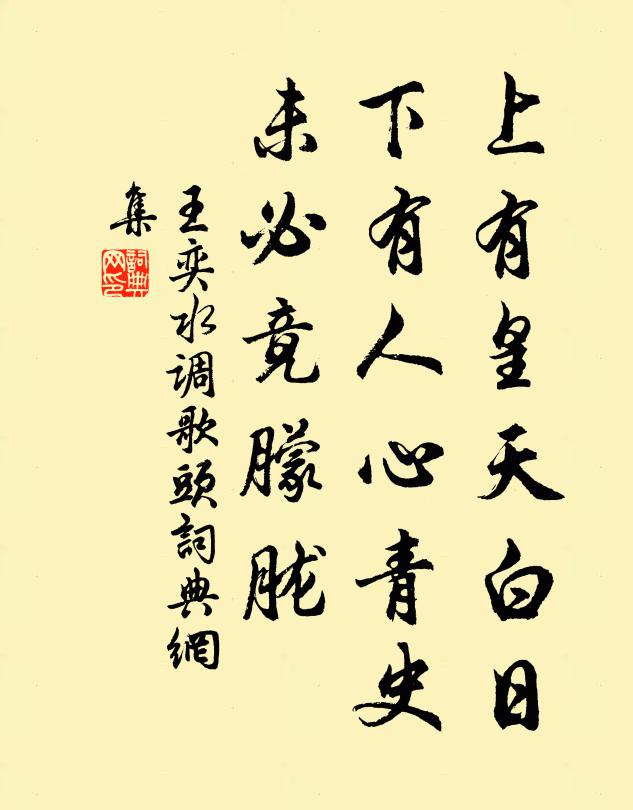 上有皇天白日
下有人心青史
未必竟朦胧
王奕水调歌頭詞典網
集
詞典
网印